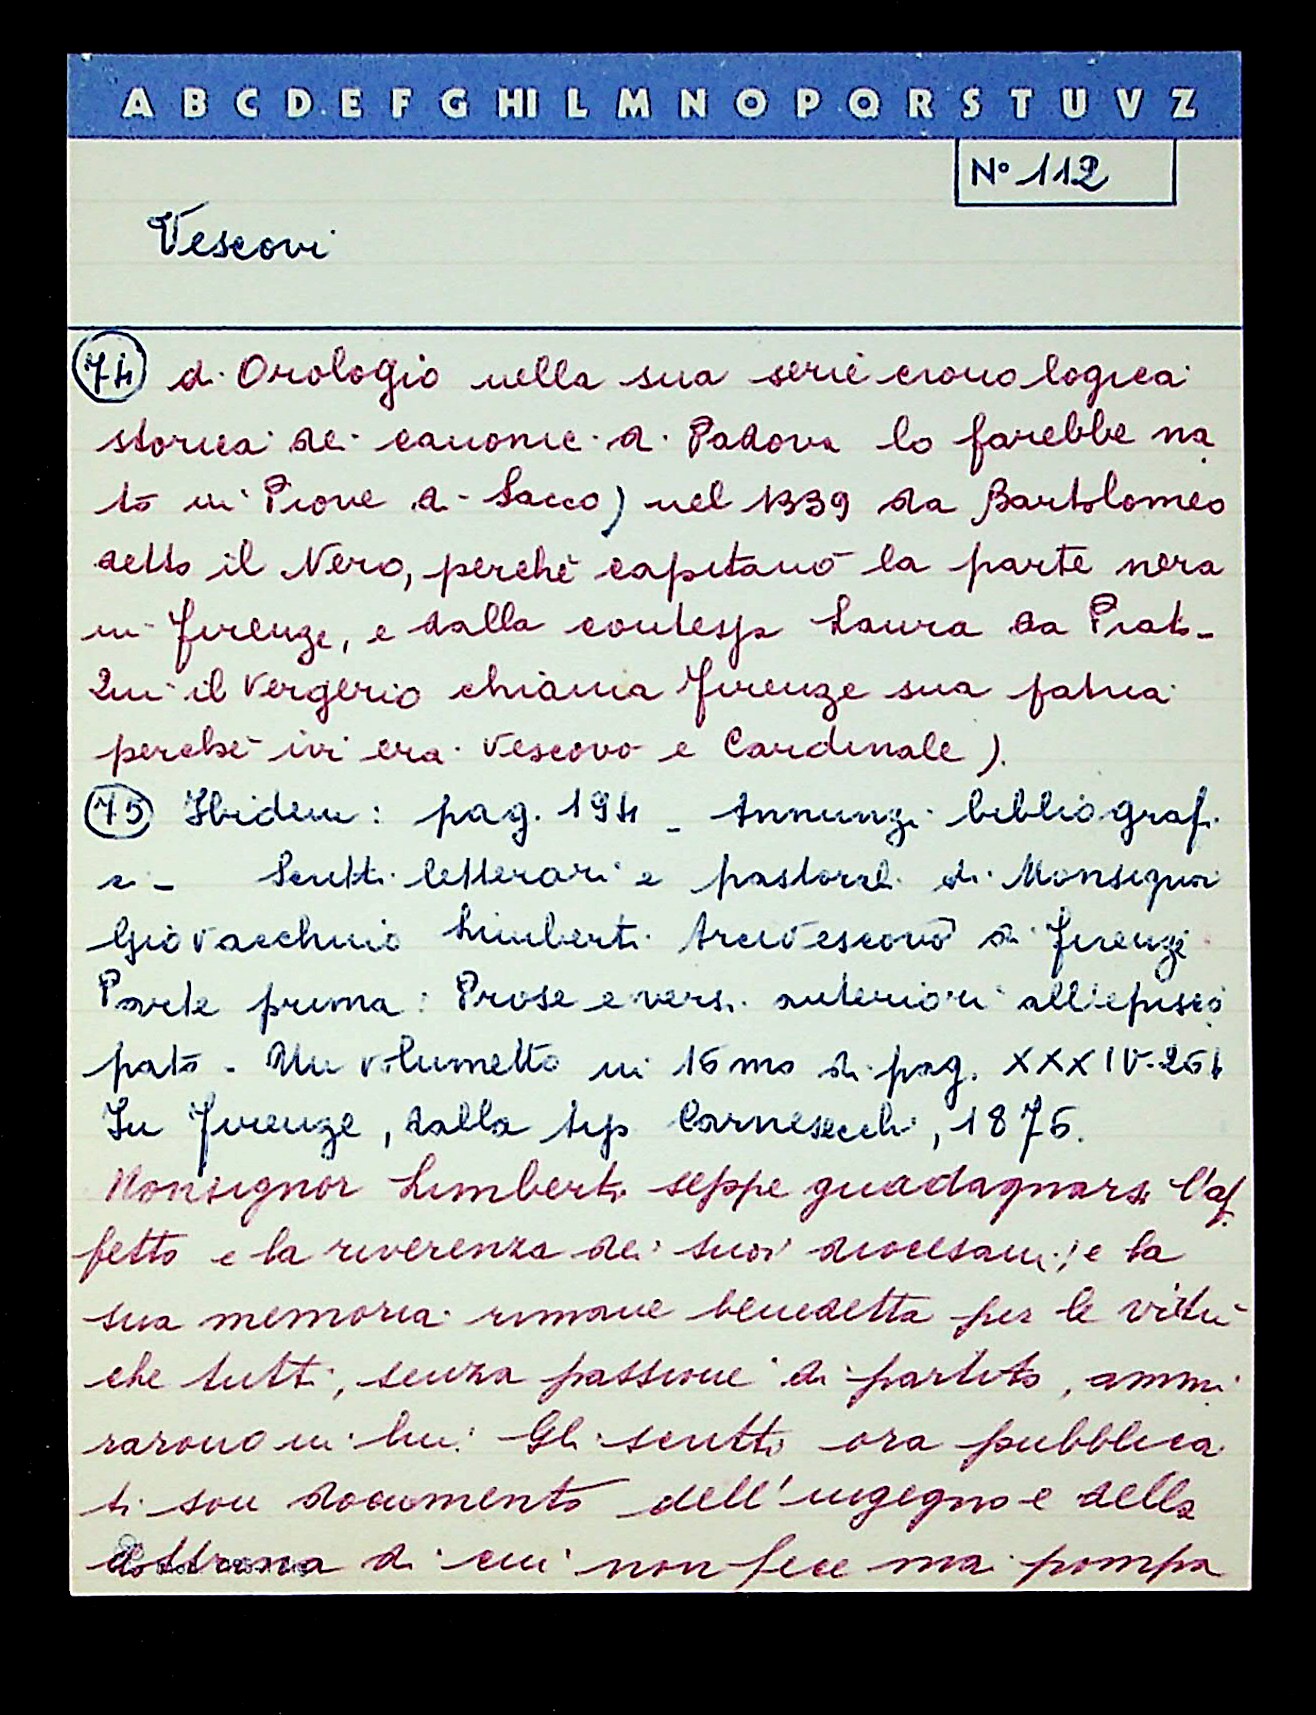 A B C D E F G HI L M N O P Q R S T U V Z
N° 112
Vescovi
74 di Orologio nella sua serie cronologica
storica dei canonici di Padova lo farebbe na
to in Piove di Sacco) nel 1339 da Bartolomeo
detto il Nero, perchè capitanò la parte nera
in Firenze, e dalla contessa Laura da Prato-
Qui il Vergerio chiama Firenze sua patria
perchè ivi era Vescovo e Cardinale).
75 Ibidem: pag. 194 - Annunzi bibliografi
ci - Scritti letterari e pastorali di Monsignor
Giovacchino Limberti Arcivescovo di Firenze
Parte prima: Prose e versi anteriori all'episco
pato - Un volumetto in 16mo di pag. XXXIV-264
In Firenze, dalla tip Carnesecchi, 1876.
Monsignor Limberti seppe guadagnarsi l'af
fetto e la riverenza dei suoi diocesani; e la
sua memoria rimane benedetta per le virtù
che tutti, senza passione di partito, ammi
rarono in lui. Gli scritti ora pubblica
ti son documento dell'ingegno e della
dottrina di cui non fece mai pompa